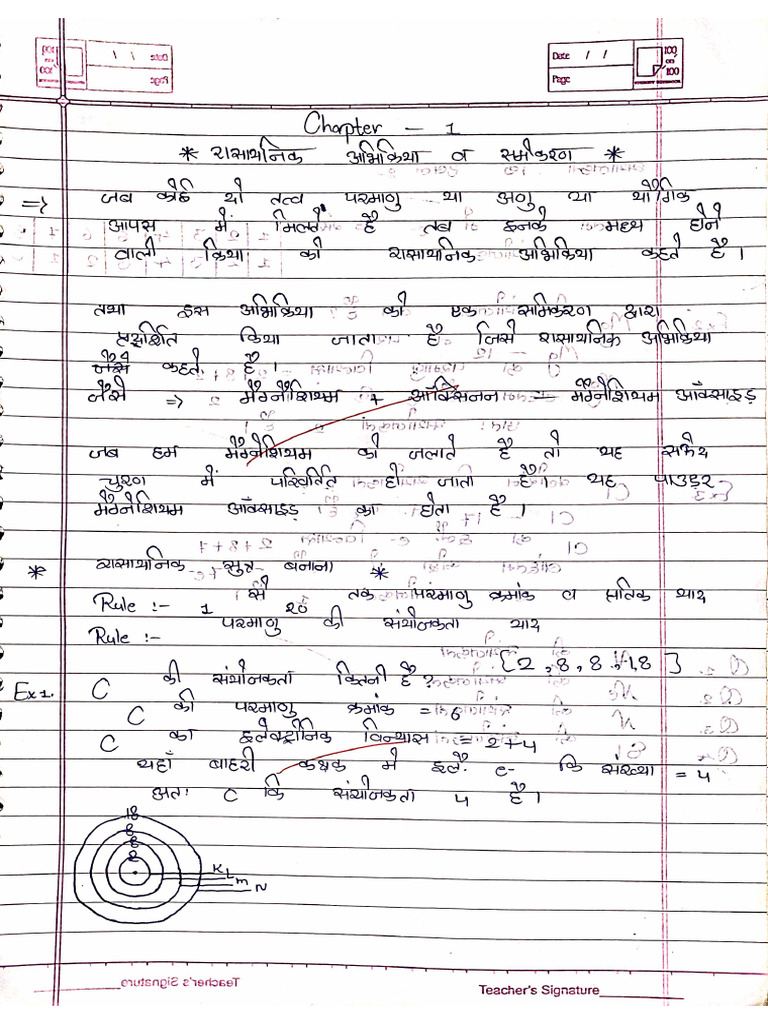 Date / /
Page
Chapter - 1
* रासायनिक अभिक्रिया व समीकरण *
=> जब कोई दो तत्व परमाणु या अणु या यौगिक
आपस में मिलते है तब इनके मध्य होने
वाली क्रिया को रासायनिक अभिक्रिया कहते है ।
तथा इस अभिक्रिया को एक समिकरण द्वारा
प्रदर्शित किया जाता है जिसे रासायनिक अभिक्रिया
कहते है ।
जैसे => मैग्नेशियम + ऑक्सिजनन = मैग्नेशियम ऑक्साइड़
जब हम मैग्नेशियम को जलाते है तो यह सफेद
चुरण में परिवर्तित हो जाता है यह पाउड़र
मैग्नेशियम ऑक्साइड़ का होता है ।
* रासायनिक सुत्र बनाना *
Rule :- 1 से 20 तक परमाणु क्रमांक व प्रतिक याद
Rule :- परमाणु की संयोजकता याद
{2,8,8,18}
Ex1. C की संयोजकता कितनी है?
C की परमाणु क्रमांक = 6
C का इलेक्ट्रॉनिक विन्यास = 2+4
यहाँ बाहरी कक्षक मे इलै. e- कि संख्या = 4
अतः C कि संयोजकता 4 है ।
18
8
8
2
K
L
m
N
Teacher's Signature